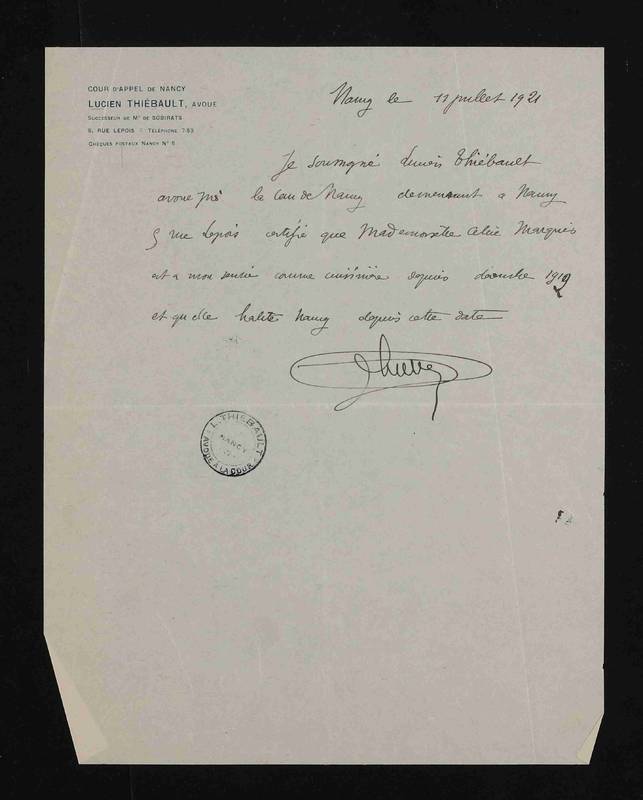 COUR D'APPEL DE NANCY
LUCIEN THIÉBAULT, AVOUÉ
SUCCESSEUR DE Me DE SUBIRATS
5, RUE LEPOIS TÉLÉPHONE 7-53
CHÈQUES POSTAUX NANCY N° 5
Nancy le 11 juillet 1921
Je soussigné Lucien Thiébault
avoué près la Cour de Nancy demeurant a Nancy
5 rue Lepois certifie que Mademoiselle Alice Marquis
est a mon service comme cuisinière depuis décembre
et qu'elle habite Nancy depuis cette date
L. THIÉBAULT
NANCY
AVOUÉ À LA COUR